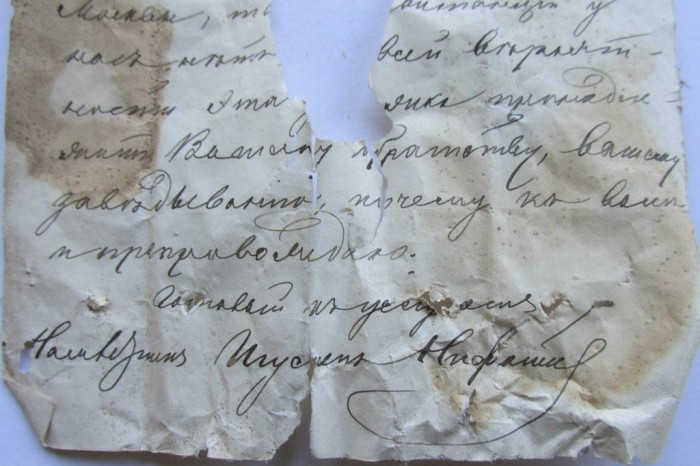 Москвы, та
насъ нѣтъ всей вѣроят-
ности эта принадле-
житъ Вашему братству, вашему
завѣдыванію, почему къ вамъ
и препровождаю.
Готовый къ услугамъ
Игуменъ